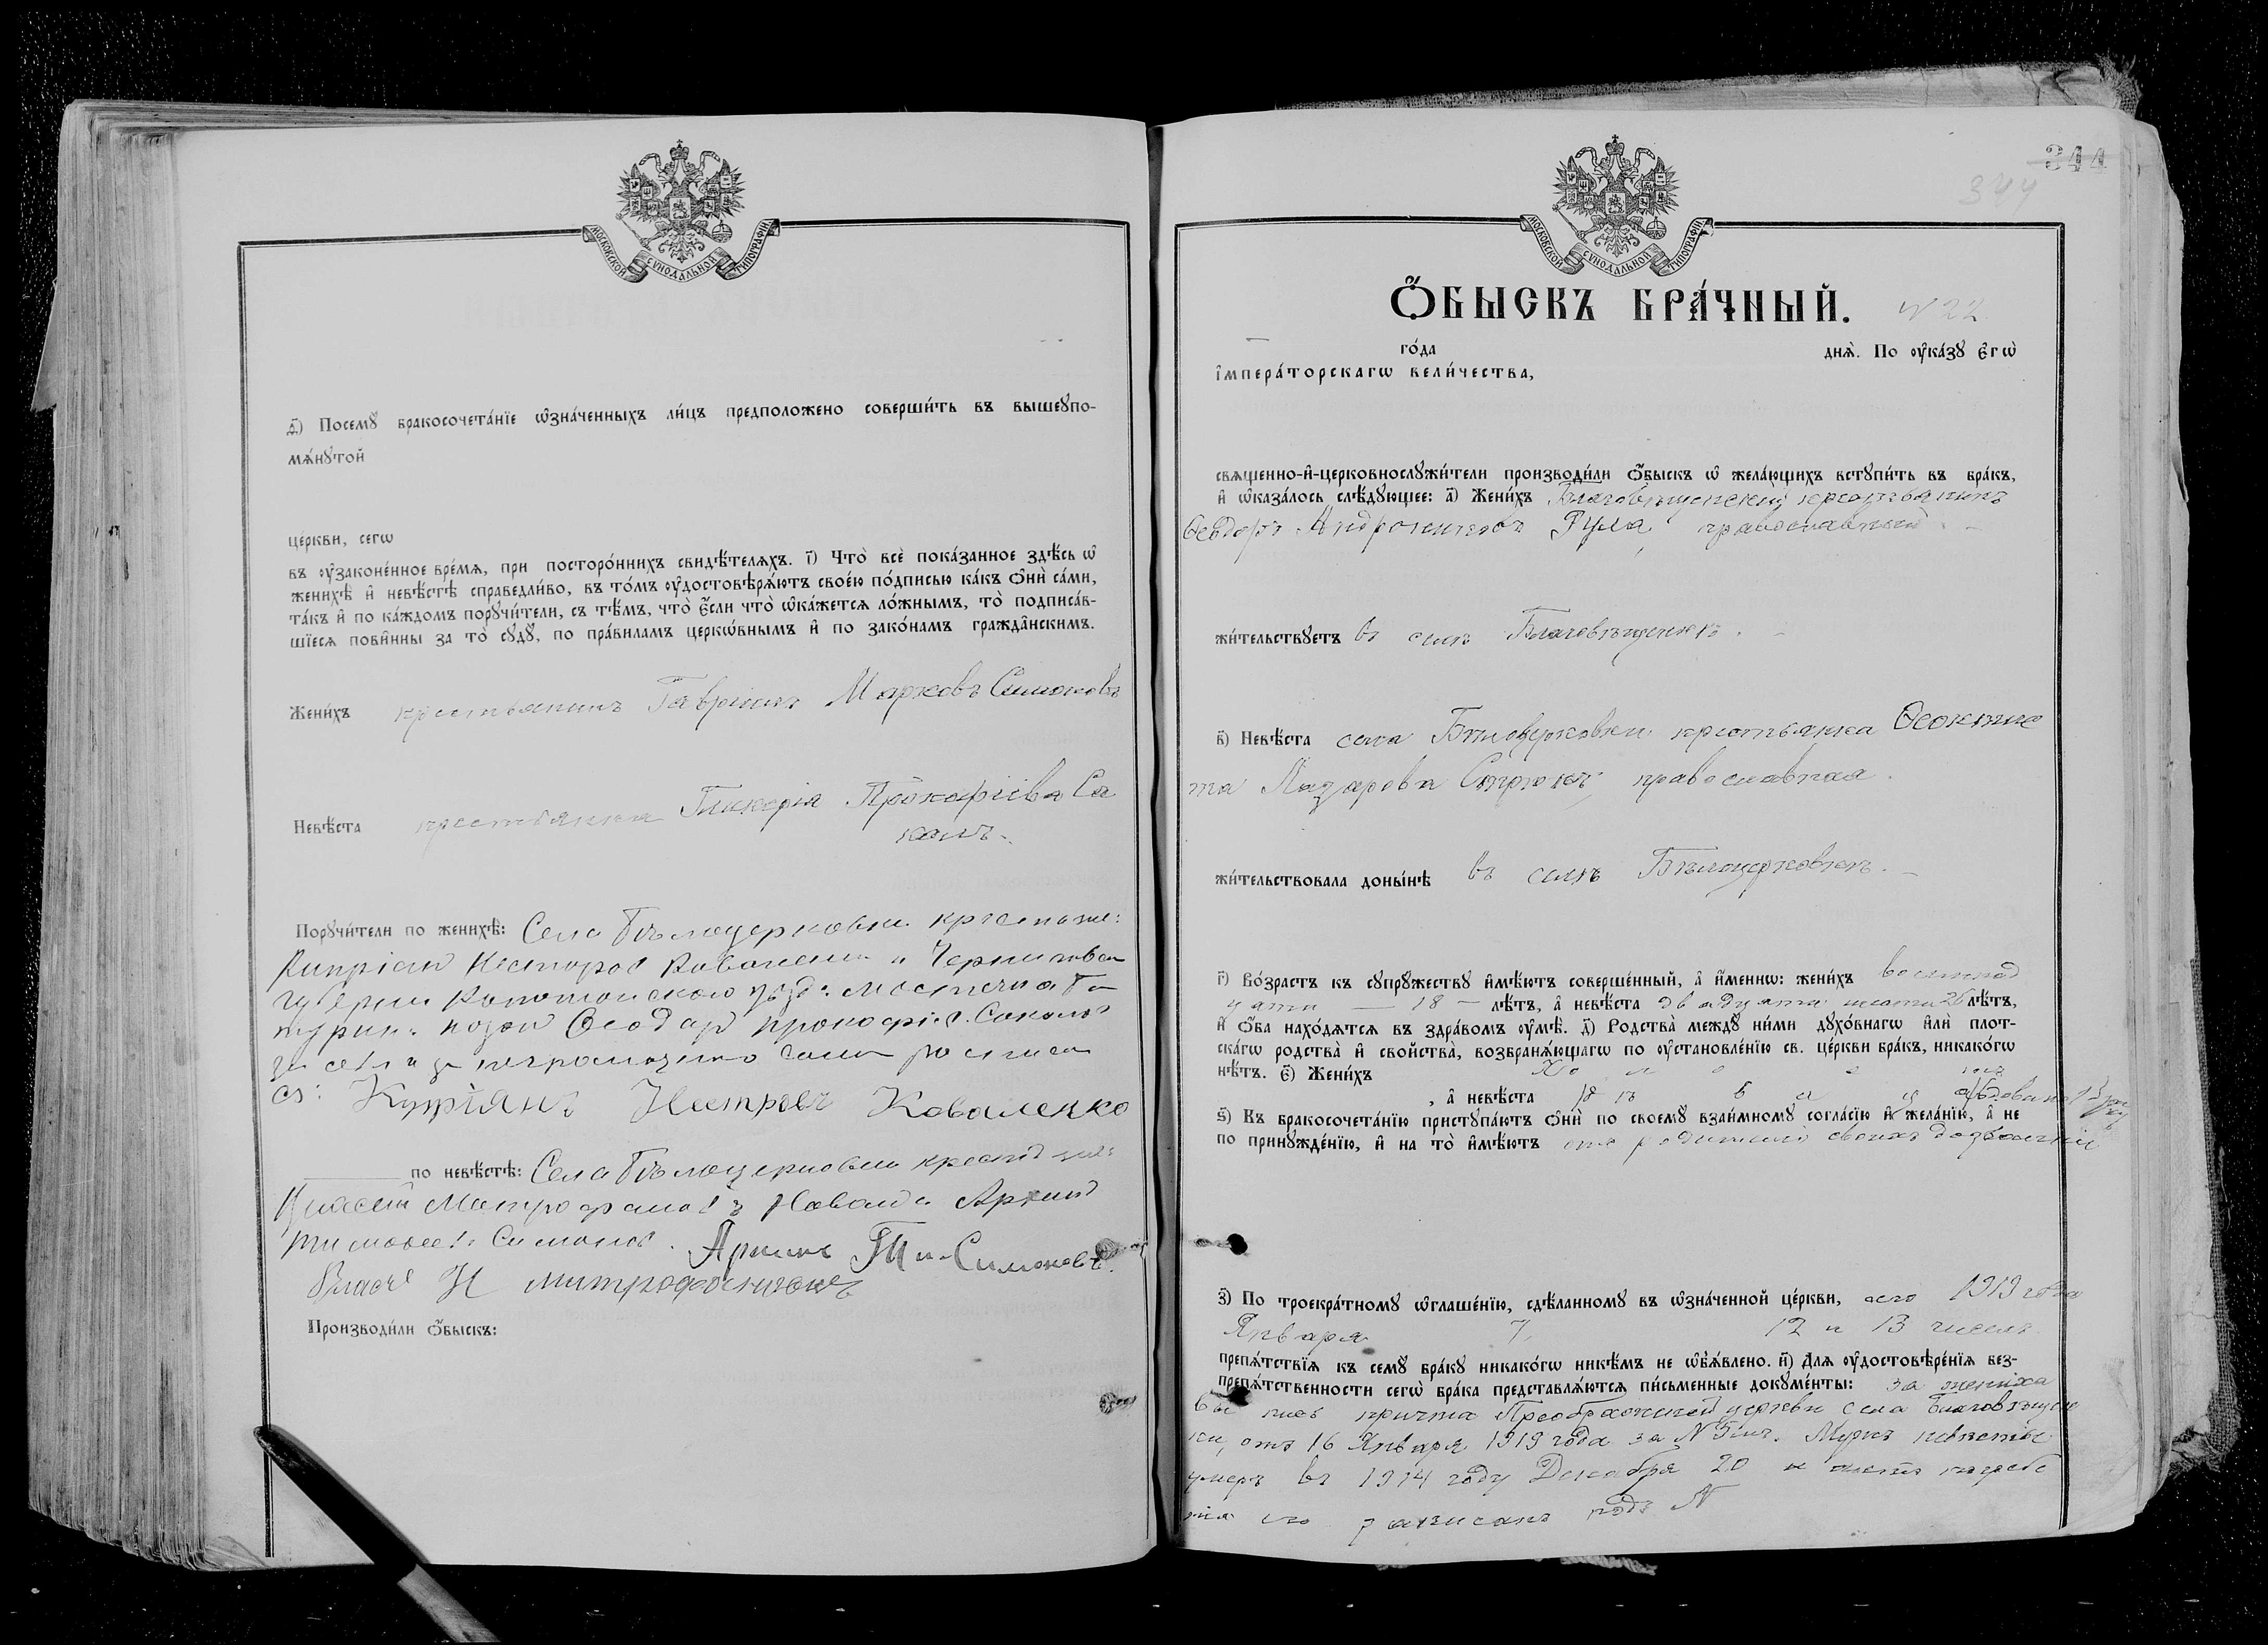 МОСКОВСКОЙ СУНОДАЛЬНОЙ ТИПОГРАФІИ
д҃) Посемꙋ̀ бракосочета́нїе ѡ҆зна́ченныхъ ли́цъ предположено соверши́ть въ вышеꙋпо-
мѧ́нꙋтой
це́ркви, сегѡ
въ ᲂу҆законе́нное вре́мѧ, при посторо́ннихъ свидѣ́телѧхъ. і҃) Что̀ всѐ пока́занное здѣ́сь ѡ҆
женихѣ̀ и҆ невѣ́стѣ справедли́во, въ то́мъ ᲂу҆достовѣрѧ́ютъ свое́ю по́дписью ка́къ ѻ҆нѝ са́ми,
та́къ и҆ по ка́ждомъ порꙋчи́тели, съ тѣ́мъ, что̀ є҆́сли что̀ ѡ҆ка́жетсѧ ло́жнымъ, то̀ подписа́в-
шїесѧ пови́нны за то̀ сꙋдꙋ̀, по пра́вилам церкѡ́внымъ и҆ по зако́намъ гражда̂нскимъ.
Жени́хъ крестьянинъ Гавріилъ Марковъ Симоновъ
Невѣ́ста крестьянка Гликерія Прокофіева Са
калъ.
Порꙋчи́тели по женихѣ̀: Села Бѣлоцерковки крестьяне:
Кипріан Несторов Коваленко и Чернигов
губерніи Конотопского уѣзда местечка Ба
турин. козак Ѳеодор Прокофіев. Соколов
за себя и за неграмотного
съ: Купріянъ Нестровъ Коваленко
по невѣ́стѣ: Села Бѣлоцерковки крестьяне:
Митрофанов Архип
Тимофеев Симонов. Архипъ Ти. Симоновъ.
Власъ Н митрофаненко
Производи́ли ѻ҆́быскъ:
344
344
МОСКОВСКОЙ СУНОДАЛЬНОЙ ТИПОГРАФІИ
Ѻ҆́БЫСКЪ БРА́ЧНЫЙ. № 22
го́да днѧ̀. По ᲂу҆ка́зꙋ є҆гѡ̀
і҆мпера́торскагѡ вели́чества,
свѧщенно-и҆-церковнослꙋжи́тели производи́ли ѻ҆́быскъ ѡ҆ жела́ющихъ встꙋпи́ть въ бра́къ,
и҆ ѡ҆каза́лось слѣ́дꙋющее: а҃) Жени́хъ Благовѣщенскій крестьянинъ
Ѳеодоръ Андрониковъ Гула, православный.
жи́тельствꙋетъ въ селѣ Благовѣщенкѣ.
в҃) Невѣ́ста села Бѣлоцерковки крестьянка Ѳеоктис
та Лазарова православная.
жи́тельствовала доны́нѣ въ селѣ Бѣлоцерковкѣ.
г҃) Во́зрастъ къ сꙋпрꙋ́жествꙋ и҆мѣ́ютъ соверше́нный, а҆ и҆́меннѡ: жени́хъ восемнад
цати — 18 — лѣ́тъ, а҆ невѣ́ста двадцати шести 26 лѣ́тъ,
и҆ ѻ҆́ба нахо́дѧтсѧ въ здра́вомъ ᲂу҆мѣ̀. д҃) Родства̀ междꙋ̀ ни́ми дꙋхо́внагѡ и҆лѝ плот-
ска́гѡ родства̀ и҆ сво́йства, возбранѧ́ющагѡ по ᲂу҆становле́нїю св. це́ркви бра́къ, никако́гѡ
нѣ́тъ. є҃) Жени́хъ Холостъ
, а҆ невѣ́ста вдовица
ѕ҃) Къ бракосочета́нїю пристꙋпа́ютъ ѻ҆нѝ по своемꙋ̀ взаи́мномꙋ согла́сїю и҆ жела́нїю, а҆ не
по принꙋжде́нїю, и҆ на то̀ и҆мѣ́ютъ отъ родителей своихъ дозволеніе
з҃) По троекра́тномꙋ ѡ҆глаше́нїю, сдѣ́ланномꙋ въ ѡ҆зна́ченной це́ркви, сего 1919 года
Января 7, 12 и 13 числъ
препѧ́тствїѧ къ семꙋ̀ бра́кꙋ никако́гѡ никѣ́мъ не ѡ҆б̾ѧ́влено. и҃) Длѧ ᲂу҆достовѣре́нїѧ без-
препѧ́тственности сегѡ̀ бра́ка представлѧ́ютсѧ пи́сьменные докꙋме́нты: за жениха
причта Преображенской церкви села Благовѣщен
ки, отъ 16 Января 1919 года за № 5мъ. Мужъ невѣсты
умеръ въ 1914 году Декабря 20 и актъ погребе
нія его записанъ подъ №